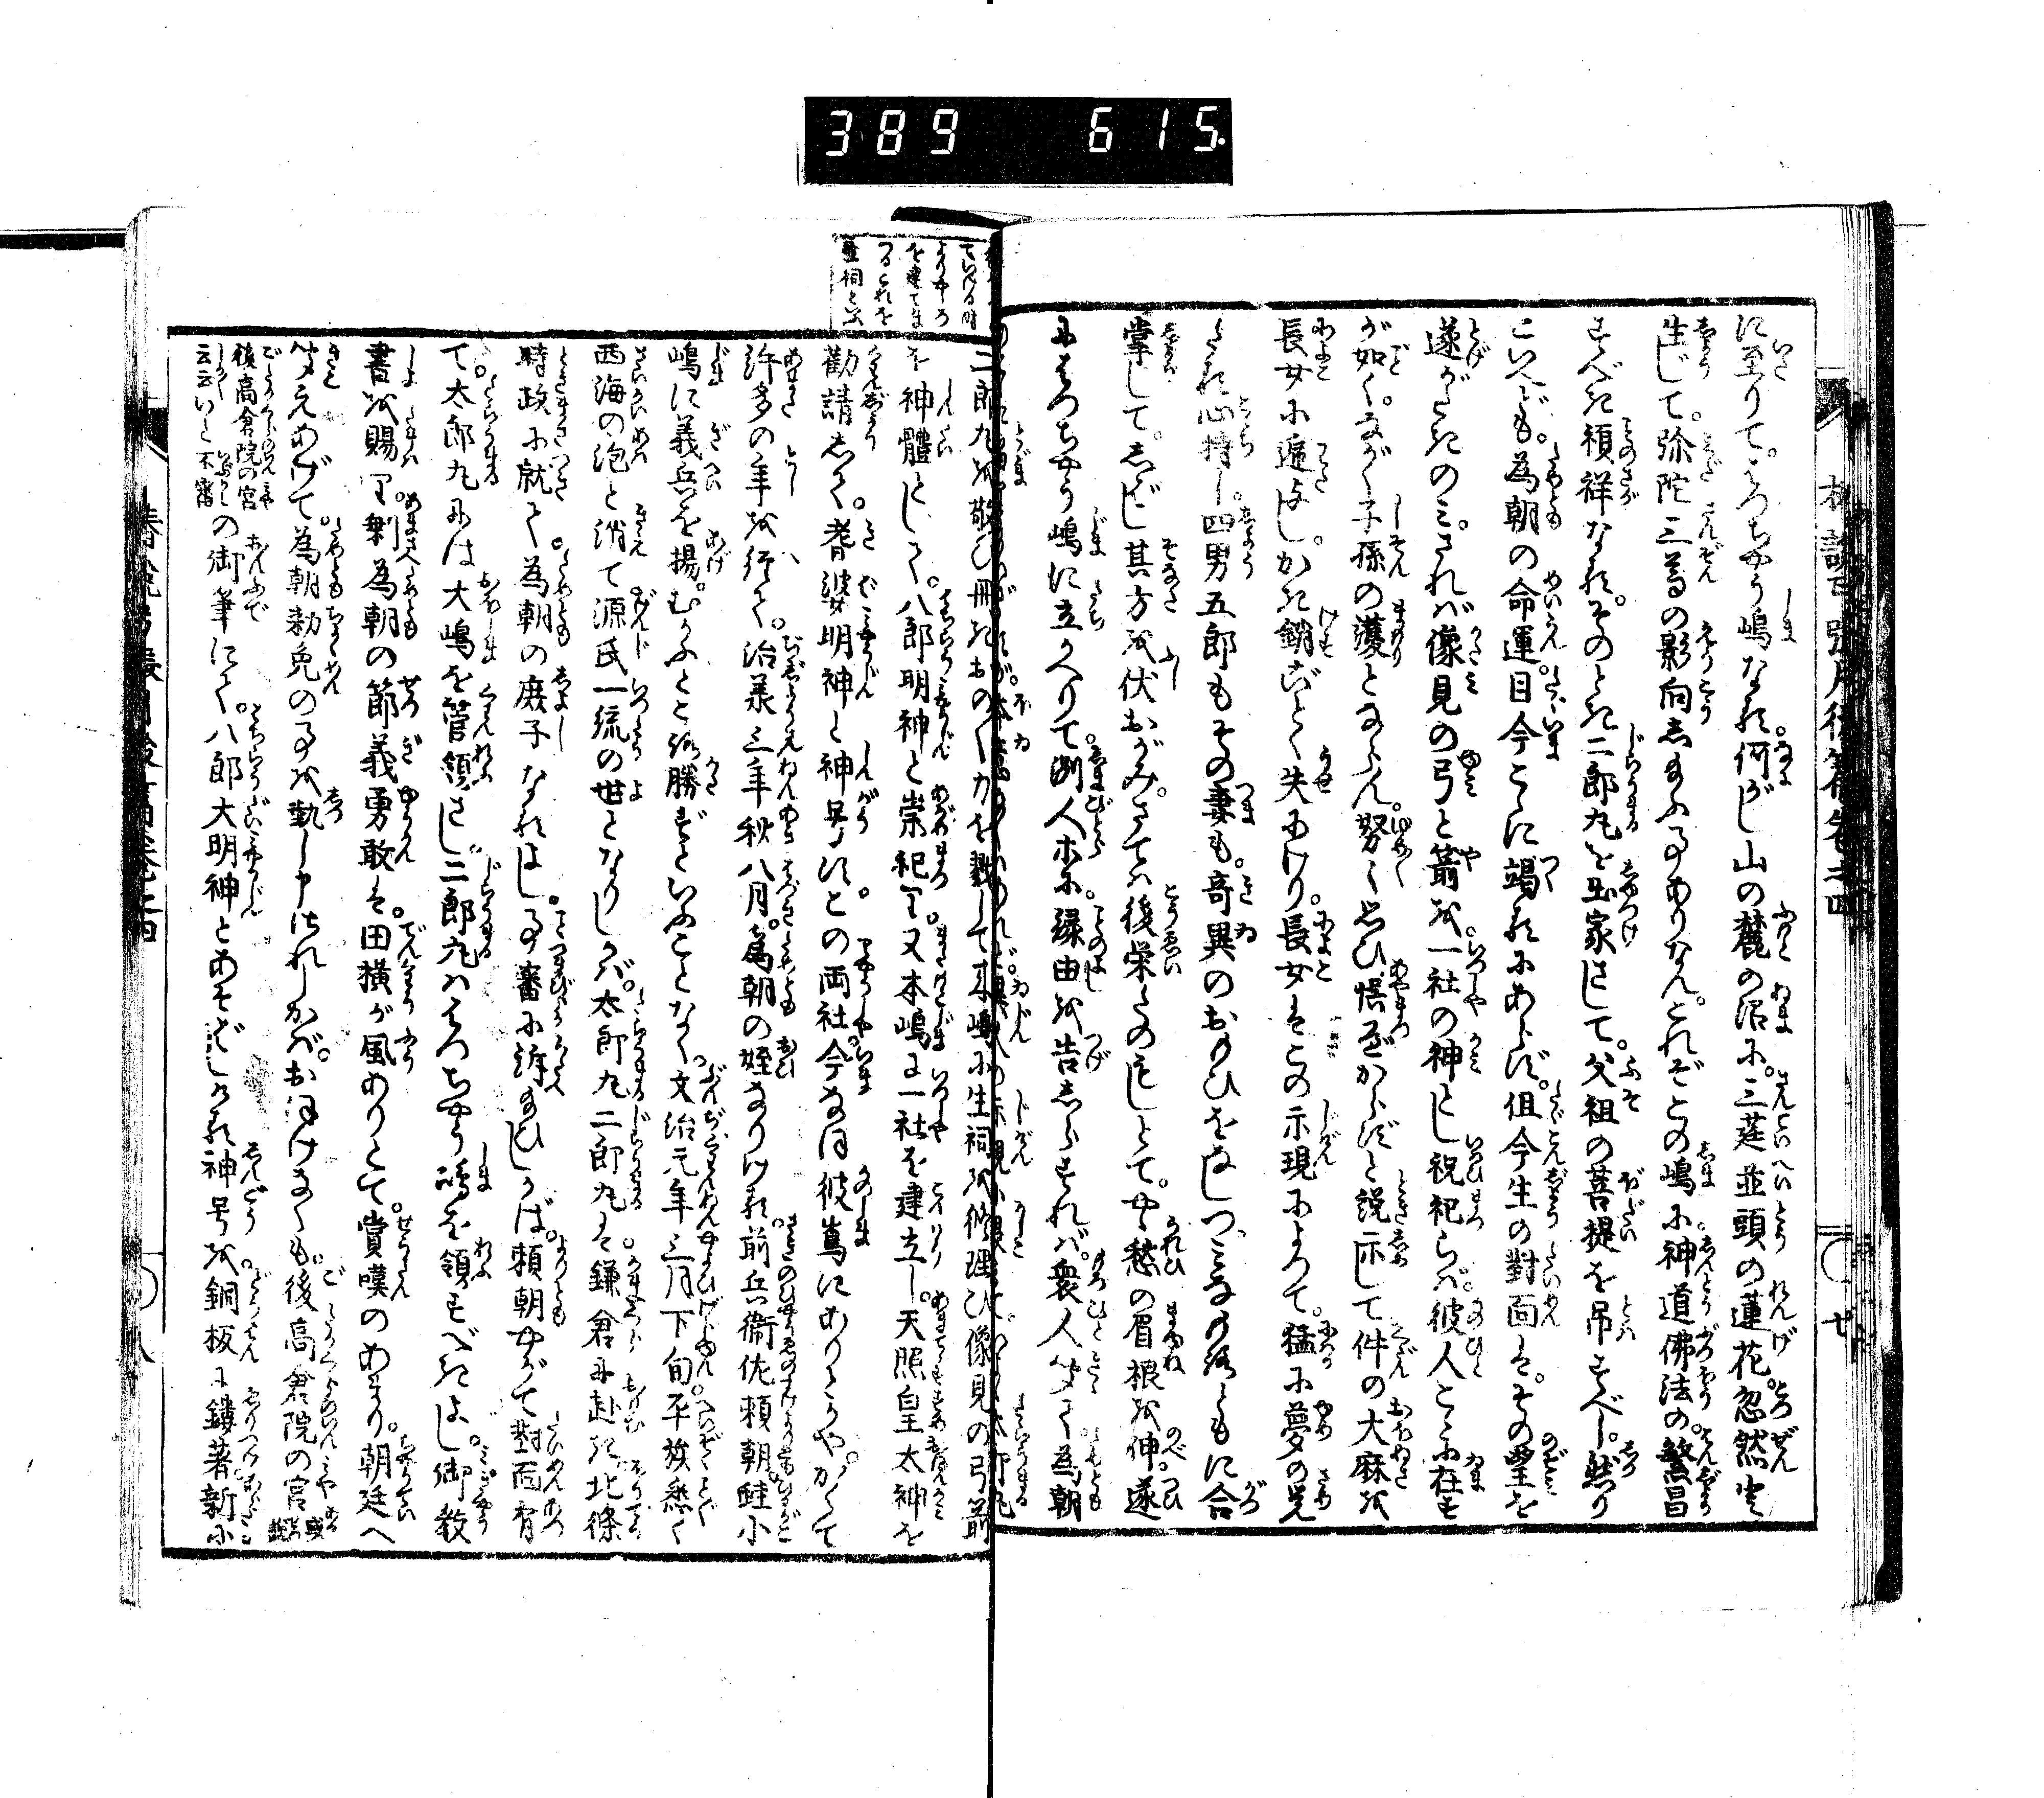 389 615.
に至りて。はつちやう嶋なる。何がし山の麓の沼に。三莖並頭の蓮花。忽然と
生じて。弥陀三尊の影向し給ふ事ありなん。これぞこの嶋に神道佛法の。繁昌
すべき禎祥なる。そのとき二郎丸を出家さして。父祖の菩提を吊すべし。然り
といへども。為朝の命運。目今こゝに竭るにあらず。但今生の對面は。その望を
遂がたきのみ。されば像見の弓と箭を。一社の神とし祝祀らば。彼人こゝに在す
が如く。ながく子孫の護とならん。努々思ひ悞べからずと説示して件の大麻を
長女に遞与し。かき銷ごとく失にけり。長女はこの示現によつて。猛に夢の覚
たる心持し。四男五郎もその妻も。奇異のおもひをなしつゝみなもろともに合
掌して。しばし其方を伏おがみ。さては後栄たのもしとて。やゝ愁の眉根を伸。遂
にはつちやう嶋に立かへりて嶋人等に。縁由を告しらすれば。衆人聞て為朝
二郎丸を敬ひ冊きおの〳〵力を戮して本嶋に生祠を修理ひ像見の弓箭
を神體として。八郎明神と崇祀り。又本嶋に一社を建立し。天照皇太神を
勸請して。耆婆明神と神号す。この両社今なほ彼嶌にありとかや。かくて
許多の年を経て。治承三年秋八月。為朝の姪なりける前兵衛佐頼朝。蛭小
嶋に義兵を揚。むかふところ勝ずといふことなく。文治元年三月下旬平族悉く
西海の泡と消て源氏一統の世となりしかば。太郎丸二郎丸は。鎌倉に赴き。北條
時政に就て。為朝の庶子なるよし。事審に訴給ひしかば。頼朝やがて對面有
て。太郎丸には大嶋を管領さし。二郎丸ははつちやう嶋を領すべきよし。御教
書を賜り。剰為朝の節義勇敢は。田横が風ありとて。賞嘆のあまり。朝廷へ
聞えあげて。為朝勅免の事を執し申されしかば。おほけなくも。後高倉院の宮
後高倉院の宮云云いと不審の御筆にて。八郎大明神とあそばしける神号を銅板に鏤著新に